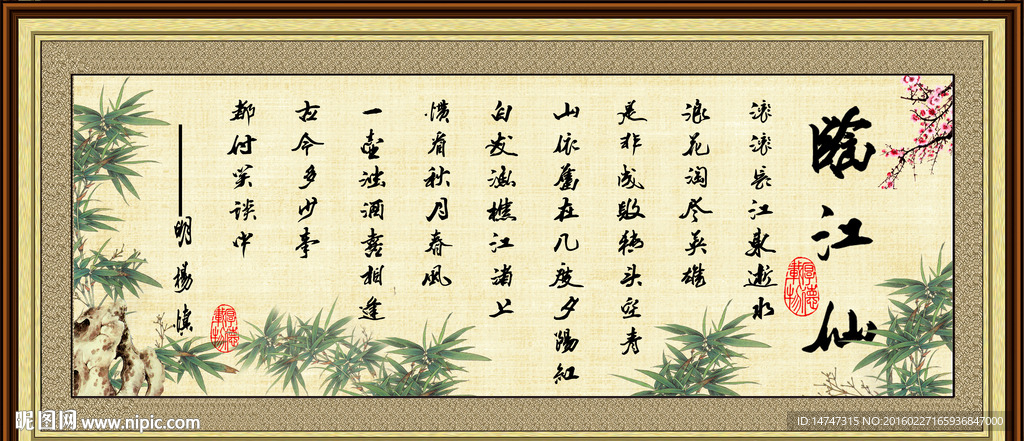 臨江仙
厚德載物
滚滚長江東逝水
浪花淘尽英雄
是非成敗轉头空青
山依舊在几度夕陽紅
白发漁樵江渚上
慣看秋月春风
一壺浊酒喜相逢
古今多少事
都付笑談中
明楊慎
厚德載物
昵图网 www.nipic.com
ID:14747315 NO:20160227165936847000